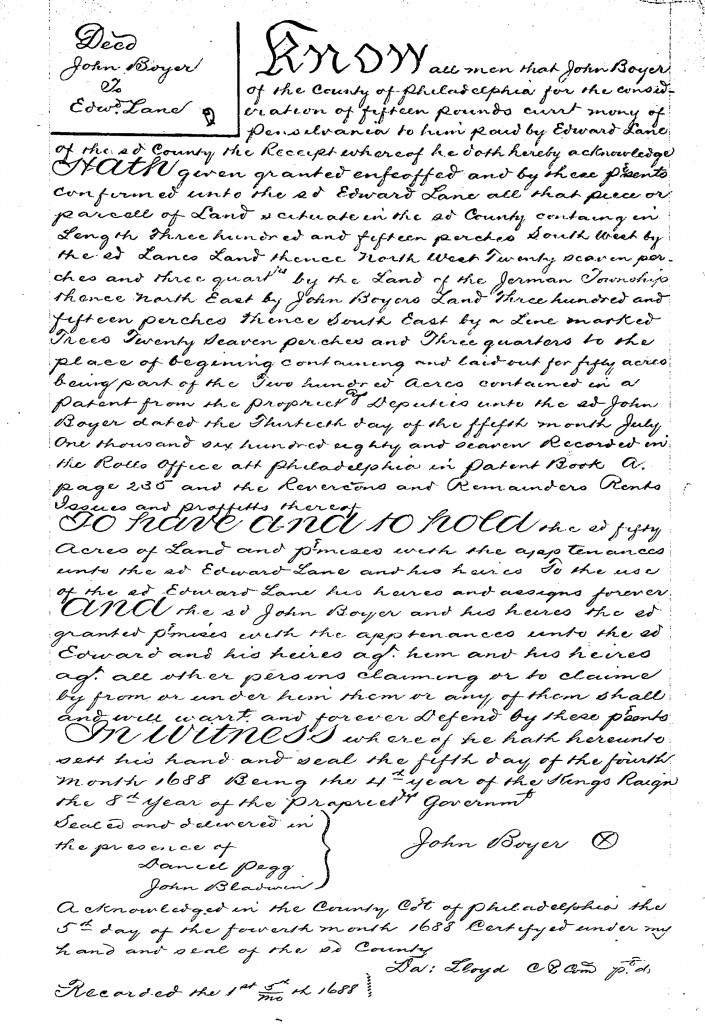 Deed
John Boyer
To
Edwd. Lane
Know all men that John Boyer
of the County of Philadelphia for the consid-
eration of fifteen pounds curtt mony of
Pensilvania to him paid by Edward Lane
of the sd County the Receipt whereof he doth hereby acknowledge
Hath given granted enfeoffed and by these psents
confirmed unto the sd Edward Lane all that piece or
parcell of Land scituate in the sd County containg in
Length Three hundred and fifteen perches South West by
the sd Lanes Land thence North West Twenty seaven per-
ches and three quartrs by the Land of the Jerman Township
thence North East by John Boyers Land Three hundred and
fifteen perches thence South East by a Line marked
Trees Twenty Seaven perches and Three quarters to the
place of begining containing and laid out for fifty acres
being part of the Two hundred Acres contained in a
Patent from the propriets Deputies unto the sd John
Boyer dated the Thirtieth day of the ffifth month July
One thousand six hundred eighty and seaven Recorded in
the Rolls Office att Philadelphia in Patent Book A.
page 235 and the Revercons and Remainders Rents
Issues and proffitts thereof
To have and to hold the sd fifty
Acres of Land and pmises with the apptenances
unto the sd Edward Lane and his heires To the use
of the sd Edward Lane his heires and assigns forever
and the sd John Boyer and his heires the sd
granted pmises with the apptenances unto the sd
Edward and his heires agt. him and his heires
agt. all other persons claiming or to claime
by from or under him them or any of them shall
and will warrt. and forever Defend by these psents
In Witness whereof he hath hereunto
sett his hand and seal the fifth day of the fourth
month 1688 Being the 4th year of the Kings Raign
the 8th Year of the Propriets Governmt
Sealed and delivered in
the presence of
Daniel Pegg
John Bladwin
John Boyer X
Acknowledged in the County Cot of Philadelphia the
5th day of the fowerth month 1688 Certifyed under my
hand and seal of the sd County
Da: Lloyd
Recorded the 1st 5th mo th 1688